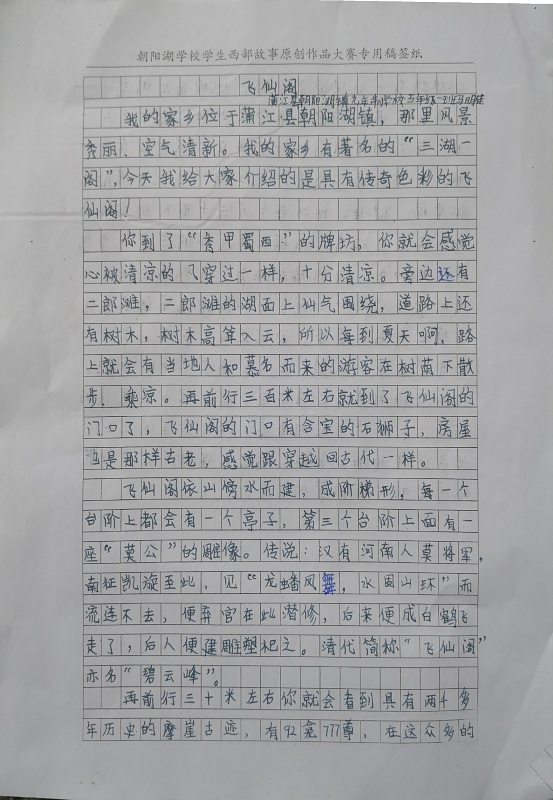 朝阳湖学校学生西部故事原创作品大赛专用稿签纸
飞仙阁
蒲江县朝阳湖镇九年制学校五年级一班
我的家乡位于蒲江县朝阳湖镇，那里风景
秀丽、空气清新。我的家乡有著名的“三湖一
阁”，今天我给大家介绍的是具有传奇色彩的飞
仙阁！
你到了“秀甲蜀西”的牌坊，你就会感觉
心被清凉的飞穿过一样，十分清凉。旁边还有
二郎滩，二郎滩的湖面上仙气围绕，道路上还
有树木，树木高耸入云，所以每到夏天啊，路
上就会有当地人和慕名而来的游客在树荫下散
步、乘凉。再前行三百米左右就到了飞仙阁的
门口了，飞仙阁的门口有含宝的石狮子，房屋
也是那样古老，感觉跟穿越回古代一样。
飞仙阁依山傍水而建，成阶梯形，每一个
台阶上都会有一个亭子，第三个台阶上面有一
座“莫公”的雕像。传说：汉有河南人莫将军，
南征凯旋至此，见“龙蟠凤舞，水围山环”而
流连不去，便弃官在此潜修，后来便成白鹤飞
走了，后人便建雕塑祀之。清代简称“飞仙阁”
亦名“碧云峰”。
再前行三十米左右你就会看到具有两千多
年历史的摩崖古迹，有92龛777尊，在这众多的